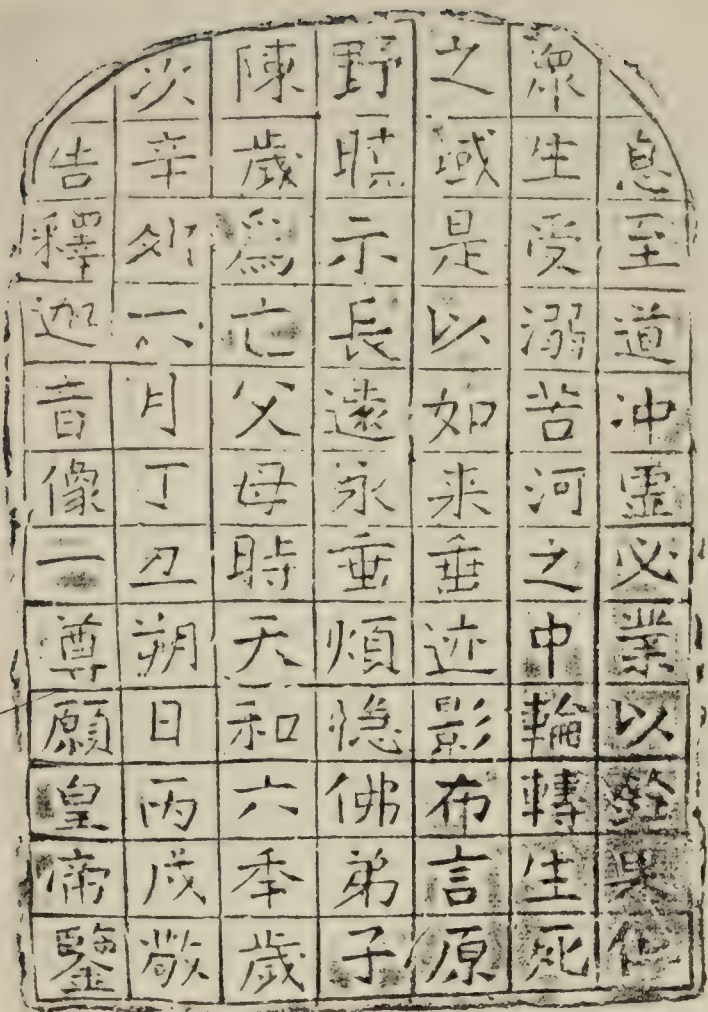 息至道冲靈必業以果
衆生受溺苦河之中輪轉生死
之域是以如来垂迹影布言原
野曉示長遠永垂煩隐佛弟子
陳歲爲亡父母時天和六季歲
次辛卯六月丁丑朔日丙戌敬
告釋迦音像一尊願皇帝鑒